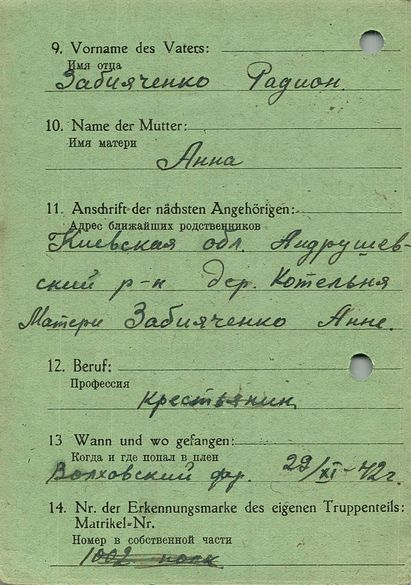 9. Vorname des Vaters:
Имя отца
Забияченко Радион.
10. Name der Mutter:
Имя матери
Анна
11. Anschrift der nächsten Angehörigen:
Адрес ближайших родственников
Киевская обл. Андрушев-
ский р-н дер. Котельня
Матери Забияченко Анне.
12. Beruf:
Профессия
крестьянин
13 Wann und wo gefangen:
Когда и где попал в плен
Волховский фр. 29/XI-42г.
14. Nr. der Erkennungsmarke des eigenen Truppenteils:
Matrikel=Nr.
Номер в собственной части
1002 полк